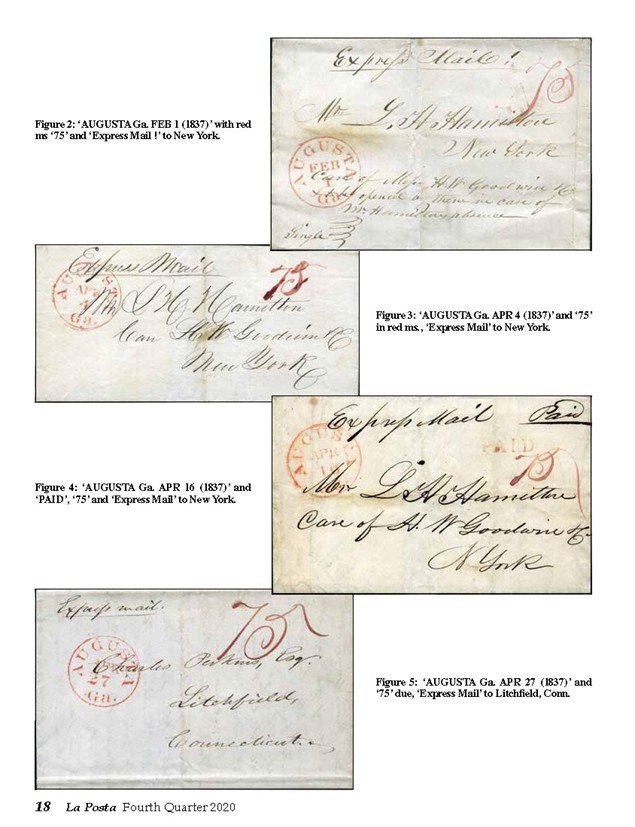 Express Mail !
75
Figure 2: ‘AUGUSTA Ga. FEB 1 (1837)’ with red
ms ‘75’ and ‘Express Mail !’ to New York.
L. H. Hamilton
New York
AUGUSTA
FEB
1
Ga.
Care of Messrs H. W. Goodwin & Co
to be opened by them in case of
Mr. Hamilton's absence
Single
Express Mail
75
AUGUSTA
APR
4
Ga.
L. H. Hamilton
Care H. W. Goodwin & Co
New York
Figure 3: ‘AUGUSTA Ga. APR 4 (1837)’ and ‘75’
in red ms., ‘Express Mail’ to New York.
Express Mail
Paid
PAID
75
AUGUSTA
APR
16
L. H. Hamilton
Care of H. W. Goodwin & Co
N York
Figure 4: ‘AUGUSTA Ga. APR 16 (1837)’ and
‘PAID’, ‘75’ and ‘Express Mail’ to New York.
Express mail.
75
AUGUSTA
27
Ga.
Charles Perkins, Esq.
Litchfield,
Connecticut.
Figure 5: ‘AUGUSTA Ga. APR 27 (1837)’ and
‘75’ due, ‘Express Mail’ to Litchfield, Conn.
18 La Posta Fourth Quarter 2020